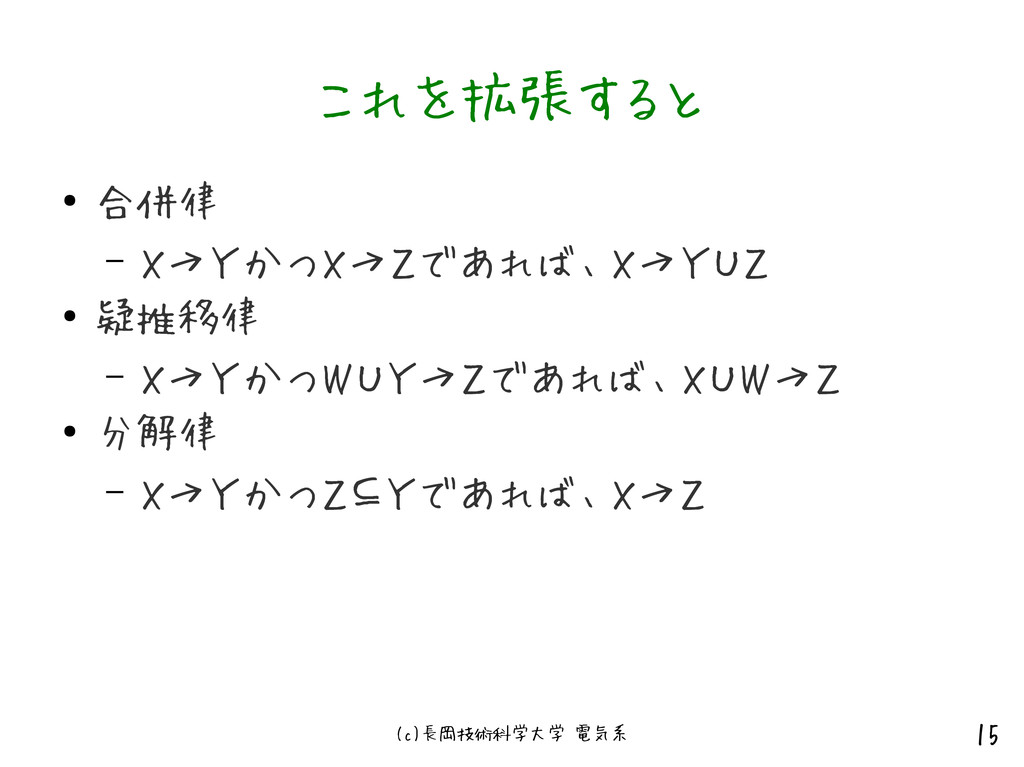 これを拡張すると
• 合併律
– X→YかつX→Zであれば、X→Y∪Z
• 疑推移律
– X→YかつW∪Y→Zであれば、X∪W→Z
• 分解律
– X→YかつZ⊆Yであれば、X→Z
(c)長岡技術科学大学 電気系
15